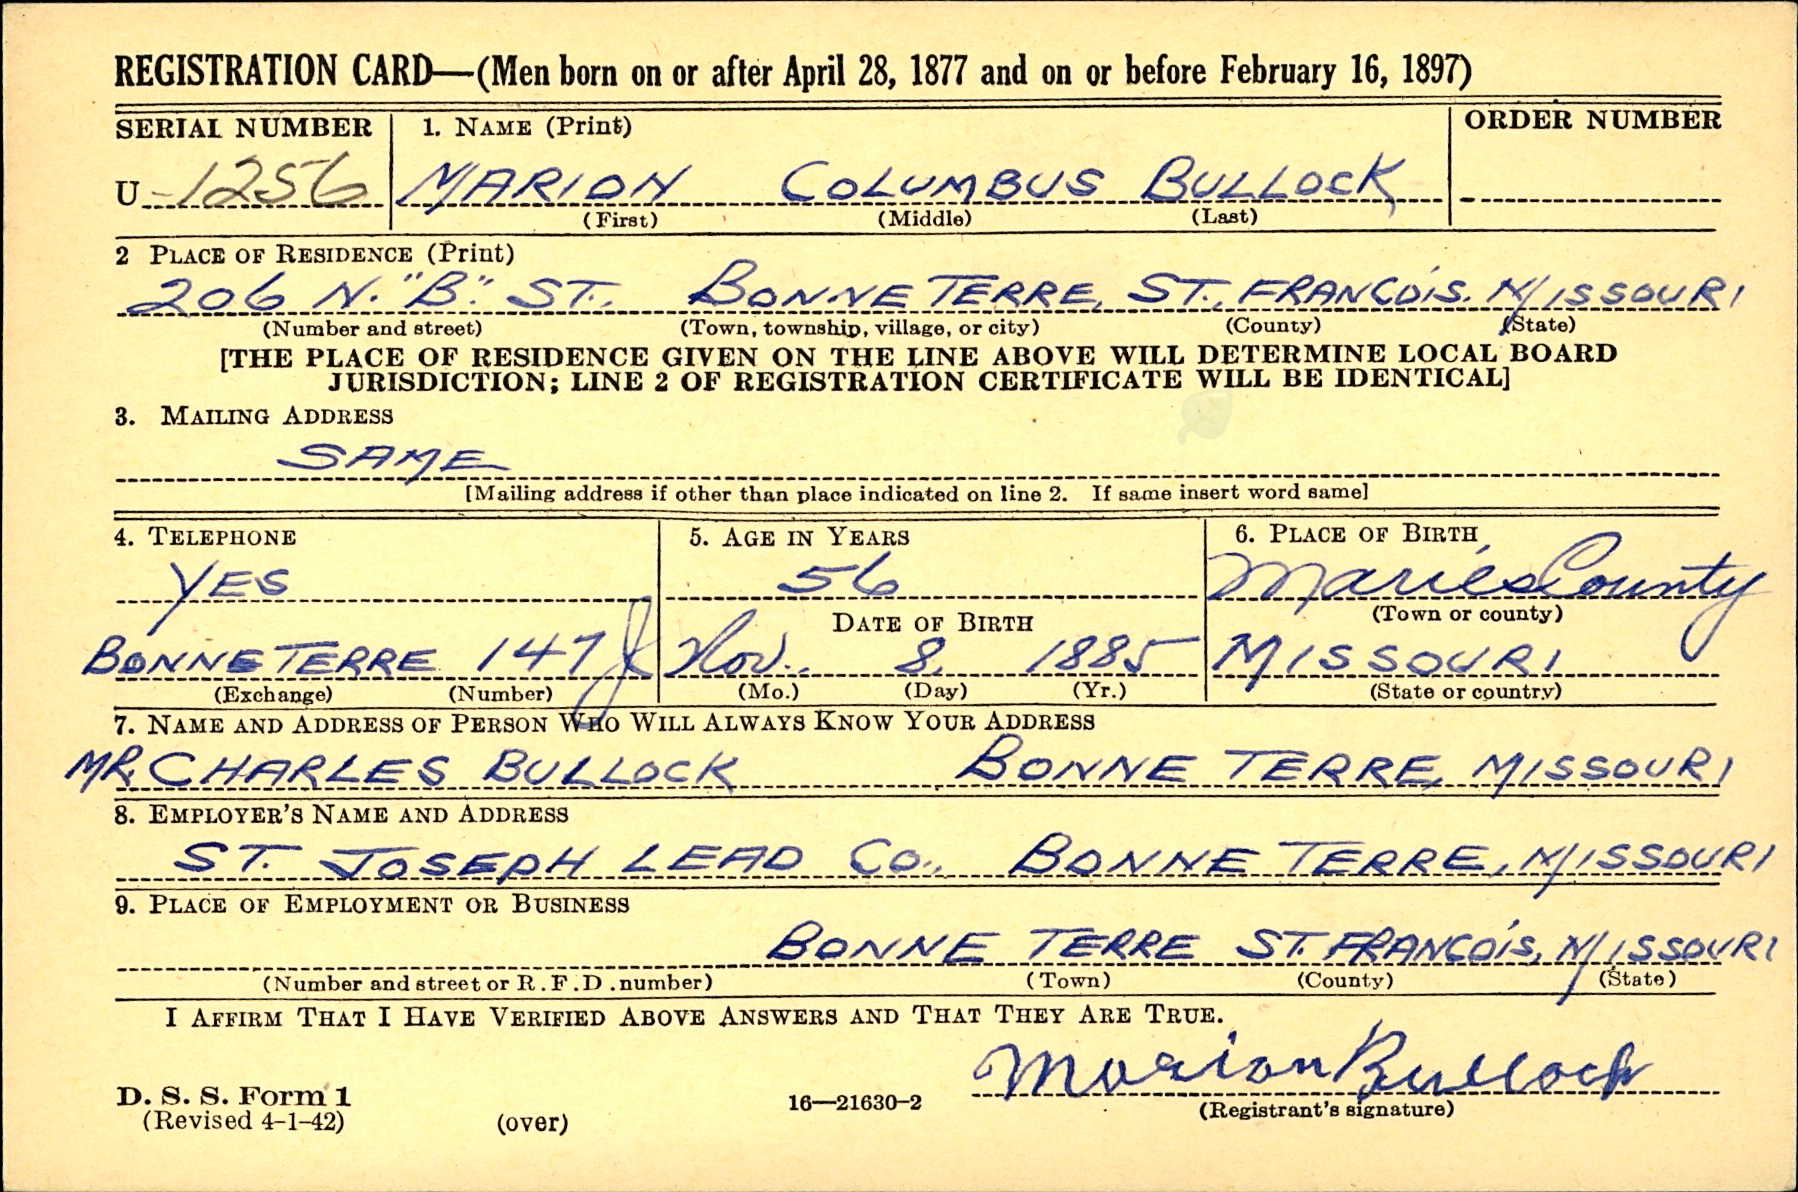 REGISTRATION CARD—(Men born on or after April 28, 1877 and on or before February 16, 1897)
SERIAL NUMBER 1. NAME (Print) ORDER NUMBER
U -1256 MARION COLUMBUS BULLOCK
(First) (Middle) (Last)
2 PLACE OF RESIDENCE (Print)
206 N. "B". ST. BONNE TERRE, ST. FRANCOIS. MISSOURI
(Number and street) (Town, township, village, or city) (County) (State)
[THE PLACE OF RESIDENCE GIVEN ON THE LINE ABOVE WILL DETERMINE LOCAL BOARD
JURISDICTION; LINE 2 OF REGISTRATION CERTIFICATE WILL BE IDENTICAL]
3. MAILING ADDRESS
SAME
[Mailing address if other than place indicated on line 2. If same insert word same]
4. TELEPHONE 5. AGE IN YEARS 6. PLACE OF BIRTH
YES 56 Maries County
DATE OF BIRTH (Town or county)
BONNE TERRE 147 J Nov. 8. 1885 MISSOURI
(Exchange) (Number) (Mo.) (Day) (Yr.) (State or country)
7. NAME AND ADDRESS OF PERSON WHO WILL ALWAYS KNOW YOUR ADDRESS
MR. CHARLES BULLOCK BONNE TERRE, MISSOURI
8. EMPLOYER'S NAME AND ADDRESS
ST. JOSEPH LEAD CO., BONNE TERRE, MISSOURI
9. PLACE OF EMPLOYMENT OR BUSINESS
BONNE TERRE ST. FRANCOIS, MISSOURI
(Number and street or R.F.D. number) (Town) (County) (State)
I AFFIRM THAT I HAVE VERIFIED ABOVE ANSWERS AND THAT THEY ARE TRUE.
Marion Bullock
D. S. S. Form 1 16—21630-2 (Registrant's signature)
(Revised 4-1-42) (over)